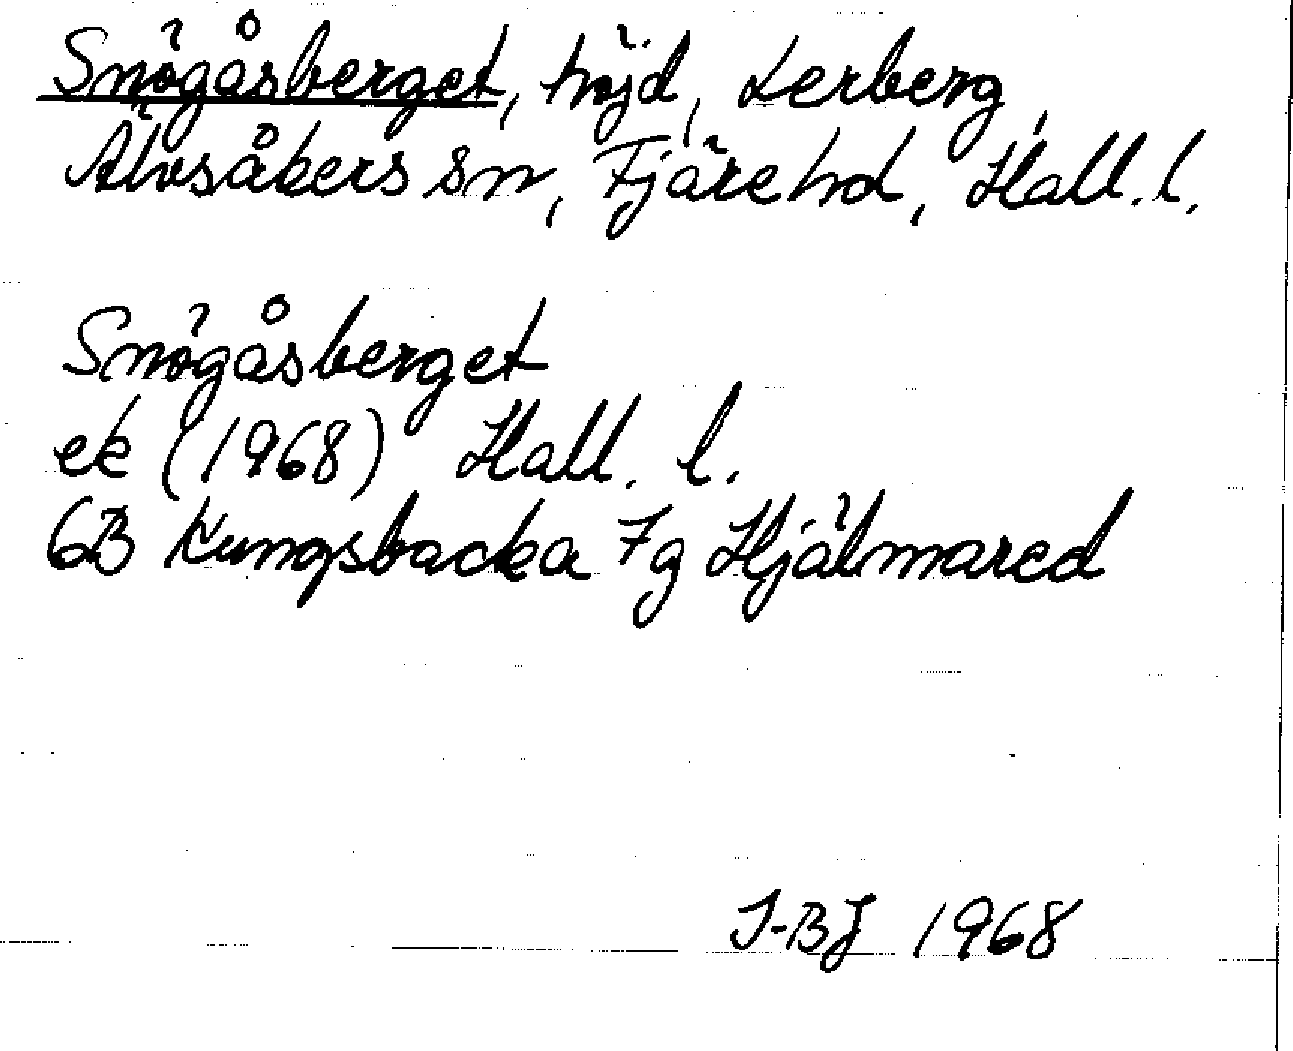 Snögåsberget, höjd, Lerberg,
Älvsåkers sn, Fjäre hd, Hall. l.
Snögåsberget
ek (1968) Hall. l.
6B Kungsbacka 7g Hjälmared
J-BJ 1968